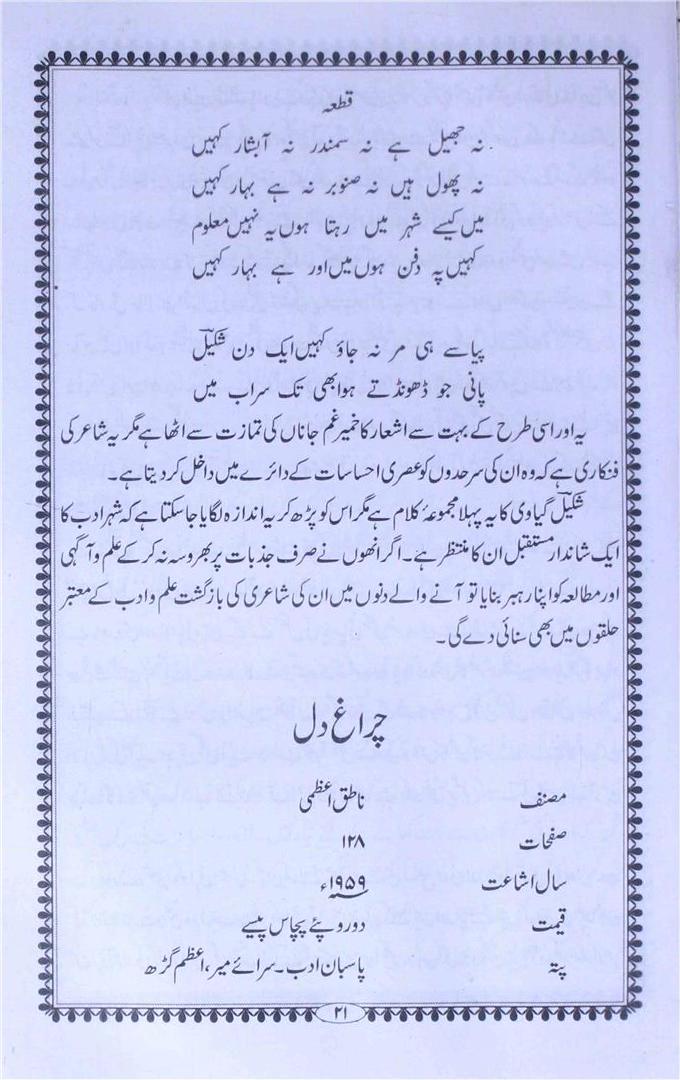 قطعہ
نہ جھیل ہے نہ سمندر نہ آبشار کہیں
نہ پھول ہیں نہ صنوبر نہ ہے بہار کہیں
میں کیسے شہر میں رہتا ہوں یہ نہیں معلوم
کہیں پہ دفن ہوں میں اور ہے بہار کہیں
پیاسے ہی مر نہ جاؤ کہیں ایک دن شکیلؔ
پانی جو ڈھونڈتے ہو ابھی تک سراب میں
یہ اور اسی طرح کے بہت سے اشعار کا خمیر غم جاناں کی تمازت سے اٹھا ہے مگر یہ شاعر کی
فنکاری ہے کہ وہ ان کی سرحدوں کو عصری احساسات کے دائرے میں داخل کر دیتا ہے۔
شکیلؔ گیاوی کا یہ پہلا مجموعۂ کلام ہے مگر اس کو پڑھ کر یہ اندازہ لگایا جا سکتا ہے کہ شہر ادب کا
ایک شاندار مستقبل ان کا منتظر ہے۔ اگر انھوں نے صرف جذبات پر بھروسہ نہ کر کے علم و آگہی
اور مطالعہ کو اپنا رہبر بنایا تو آنے والے دنوں میں ان کی شاعری کی بازگشت علم و ادب کے معتبر
حلقوں میں بھی سنائی دے گی۔
چراغ دل
مصنف ناطق اعظمی
صفحات ۱۲۸
سال اشاعت ۱۹۵۹ء
قیمت دو روپئے پچاس پیسے
پتہ پاسبان ادب۔ سرائے میر، اعظم گڑھ
۲۱